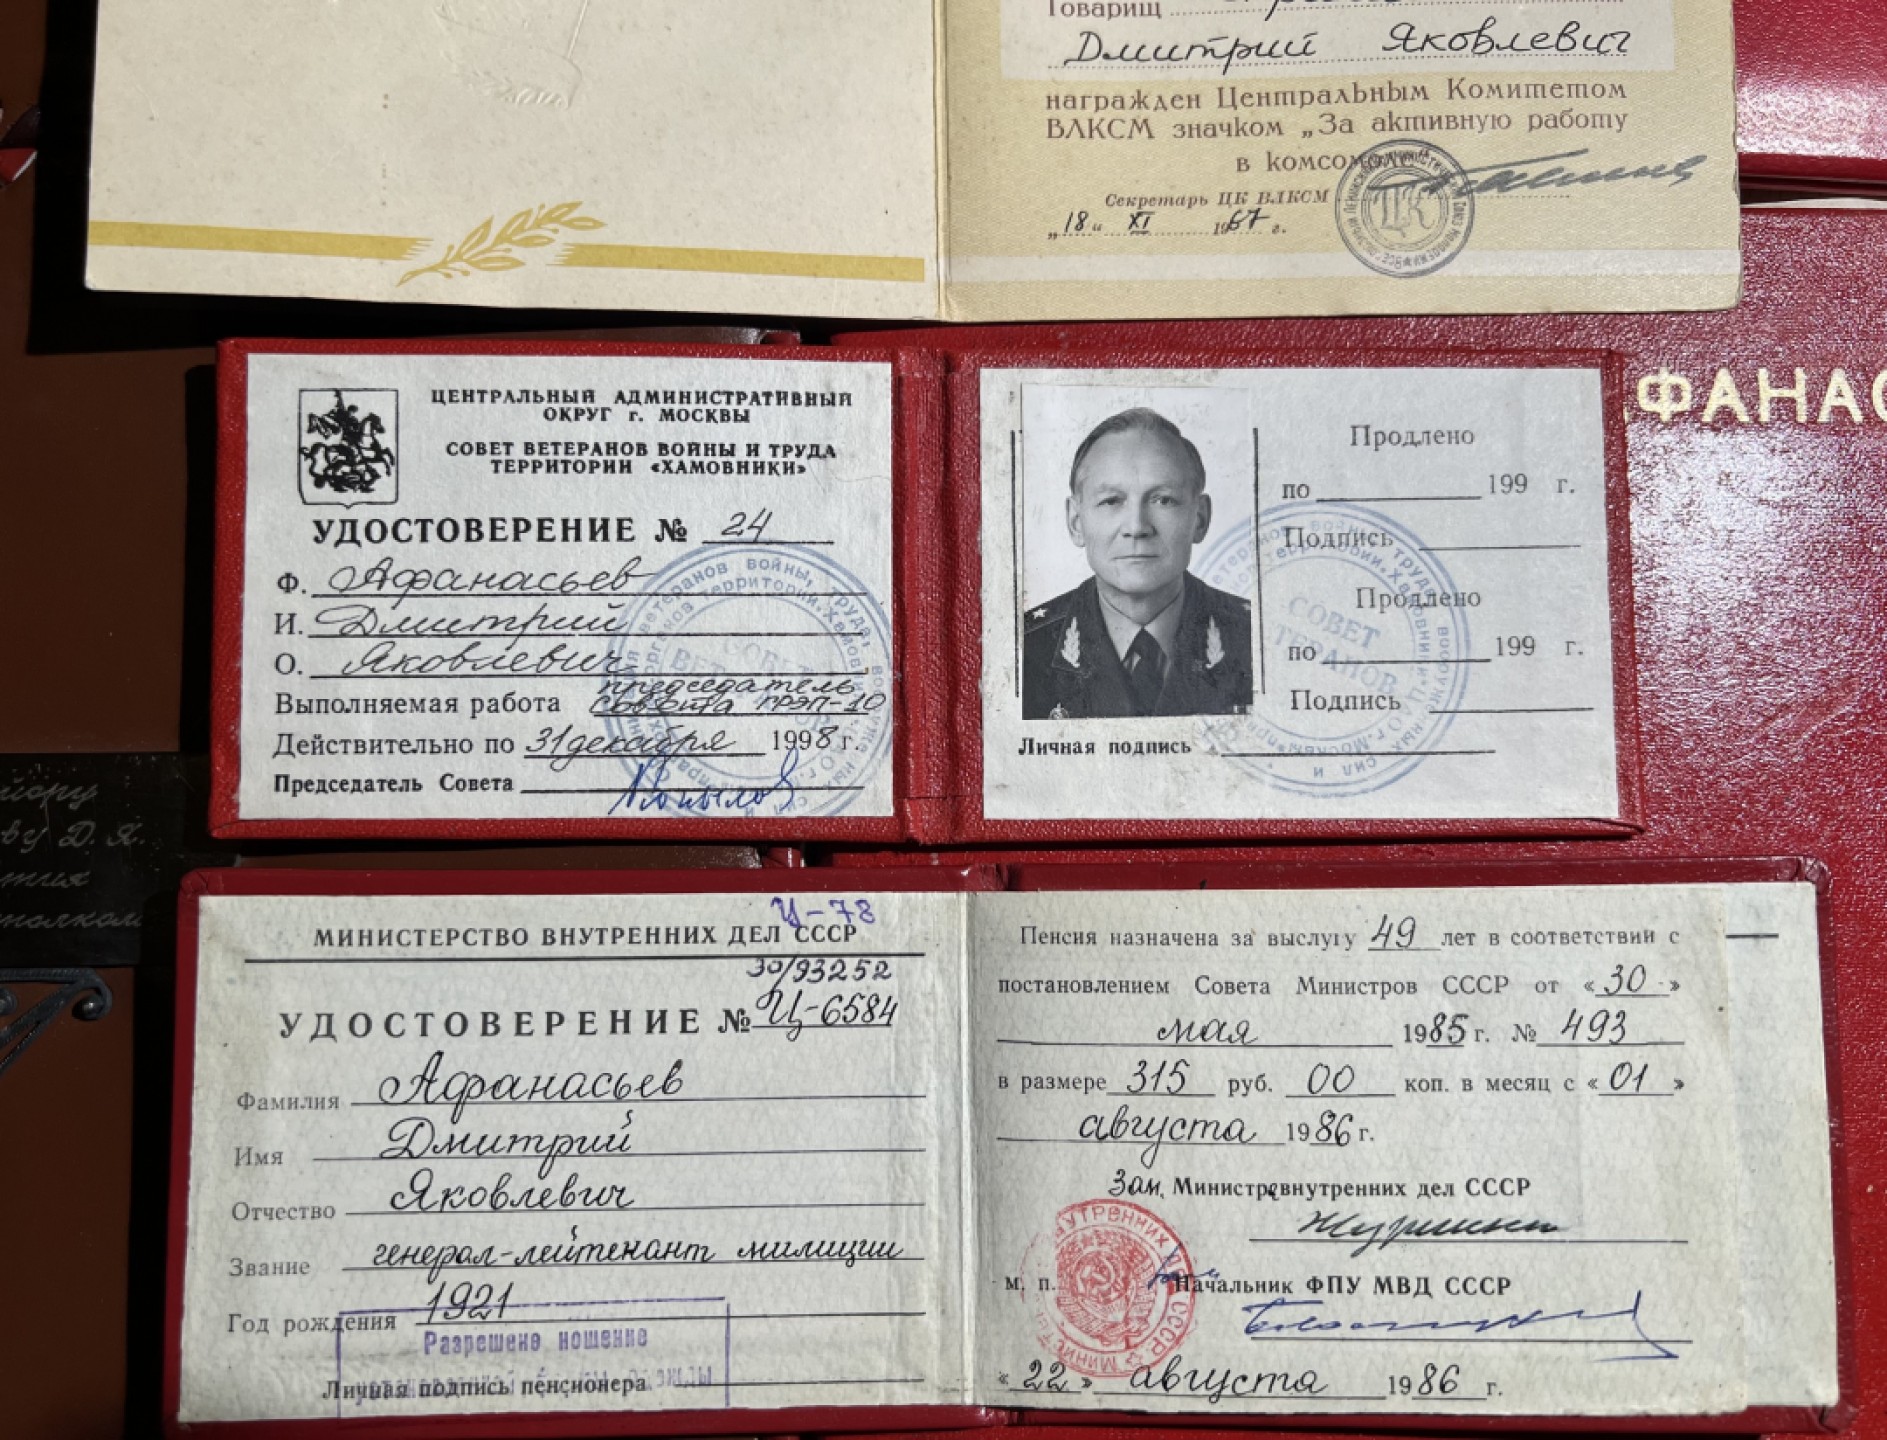 Товарищ
Дмитрий Яковлевич
награжден Центральным Комитетом
ВЛКСМ значком „За активную работу
в комсомоле"
Секретарь ЦК ВЛКСМ
„18" XI 1967 г.
ЦК
ЦЕНТРАЛЬНЫЙ АДМИНИСТРАТИВНЫЙ
ОКРУГ г. МОСКВЫ
СОВЕТ ВЕТЕРАНОВ ВОЙНЫ И ТРУДА
ТЕРРИТОРИИ «ХАМОВНИКИ»
УДОСТОВЕРЕНИЕ № 24
Ф. Афанасьев
И. Дмитрий
О. Яковлевич
Выполняемая работа председатель
Совета РЭП-10
Действительно по 31 декабря 1998 г.
Председатель Совета
Продлено
по 199 г.
Подпись
Продлено
по 199 г.
Подпись
Личная подпись
СОВЕТ
ВЕТЕРАНОВ
ФАНАС
ву Д. Я.
МИНИСТЕРСТВО ВНУТРЕННИХ ДЕЛ СССР
Ц-78
30/93252
УДОСТОВЕРЕНИЕ № Ц-6584
Фамилия Афанасьев
Имя Дмитрий
Отчество Яковлевич
Звание генерал-лейтенант милиции
Год рождения 1921
Разрешено ношение
Личная подпись пенсионера
Пенсия назначена за выслугу 49 лет в соответствии с
постановлением Совета Министров СССР от «30»
мая 1985 г. № 493
в размере 315 руб. 00 коп. в месяц с «01»
августа 1986 г.
Зам. Министра внутренних дел СССР
м. п.
Начальник ФПУ МВД СССР
«22» августа 1986 г.